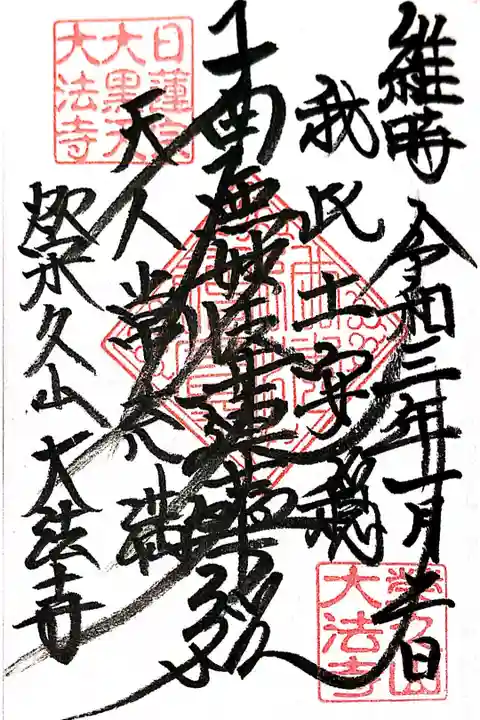 維時 令和三年十一月 日
我此土安穏
南無妙法蓮華経
天人常充満
栄久山 大法寺
日蓮宗
大黒天
大法寺
栄久山
大法寺